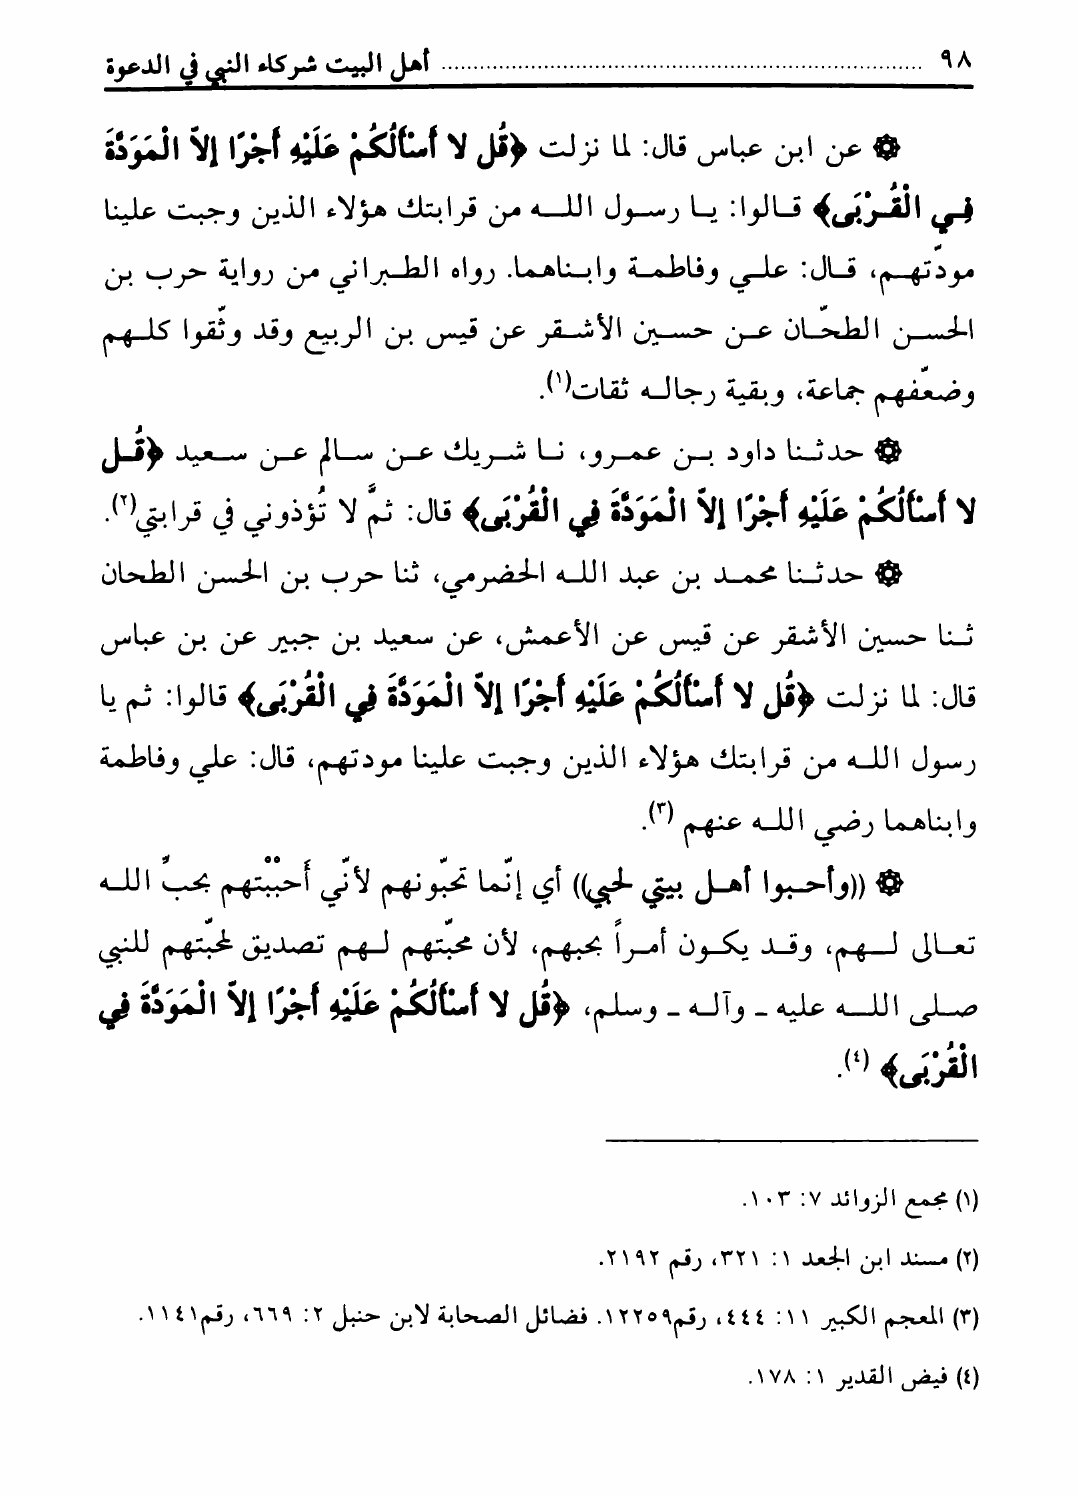 ٩٨ ........ أهل البيت شركاء النبي في الدعوة
۞ عن ابن عباس قال: لما نزلت ﴿قُل لا أَسْأَلُكُمْ عَلَيْهِ أَجْرًا إلاّ الْمَوَدَّةَ
فِي الْقُرْبَى﴾ قالوا: يا رسول الله من قرابتك هؤلاء الذين وجبت علينا
مودّتهم، قال: علي وفاطمة وابناهما. رواه الطبراني من رواية حرب بن
الحسن الطحّان عن حسين الأشقر عن قيس بن الربيع وقد وثّقوا كلهم
وضعّفهم جماعة، وبقية رجاله ثقات(١).
۞ حدثنا داود بن عمرو، نا شريك عن سالم عن سعيد ﴿قُل
لا أَسْأَلُكُمْ عَلَيْهِ أَجْرًا إلاّ الْمَوَدَّةَ فِي الْقُرْبَى﴾ قال: ثمَّ لا تُؤذوني في قرابتي(٢).
۞ حدثنا محمد بن عبد الله الحضرمي، ثنا حرب بن الحسن الطحان
ثنا حسين الأشقر عن قيس عن الأعمش، عن سعيد بن جبير عن بن عباس
قال: لما نزلت ﴿قُل لا أَسْأَلُكُمْ عَلَيْهِ أَجْرًا إلاّ الْمَوَدَّةَ فِي الْقُرْبَى﴾ قالوا: ثم يا
رسول الله من قرابتك هؤلاء الذين وجبت علينا مودتهم، قال: علي وفاطمة
وابناهما رضي الله عنهم (٣).
۞ ((وأحبوا أهل بيتي لحبي)) أي إنّما تحبّونهم لأنّي أَحبْبْتهم بحبِّ الله
تعالى لهم، وقد يكون أمراً بحبهم، لأن محبّتهم لهم تصديق لمحبّتهم للنبي
صلى الله عليه ـ وآله ـ وسلم، ﴿قُل لا أَسْأَلُكُمْ عَلَيْهِ أَجْرًا إلاّ الْمَوَدَّةَ فِي
الْقُرْبَى﴾ (٤).
(١) مجمع الزوائد ٧: ١٠٣.
(٢) مسند ابن الجعد ١: ٣٢١، رقم ٢١٩٢.
(٣) المعجم الكبير ١١: ٤٤٤، رقم١٢٢٥٩. فضائل الصحابة لابن حنبل ٢: ٦٦٩، رقم١١٤١.
(٤) فيض القدير ١: ١٧٨.